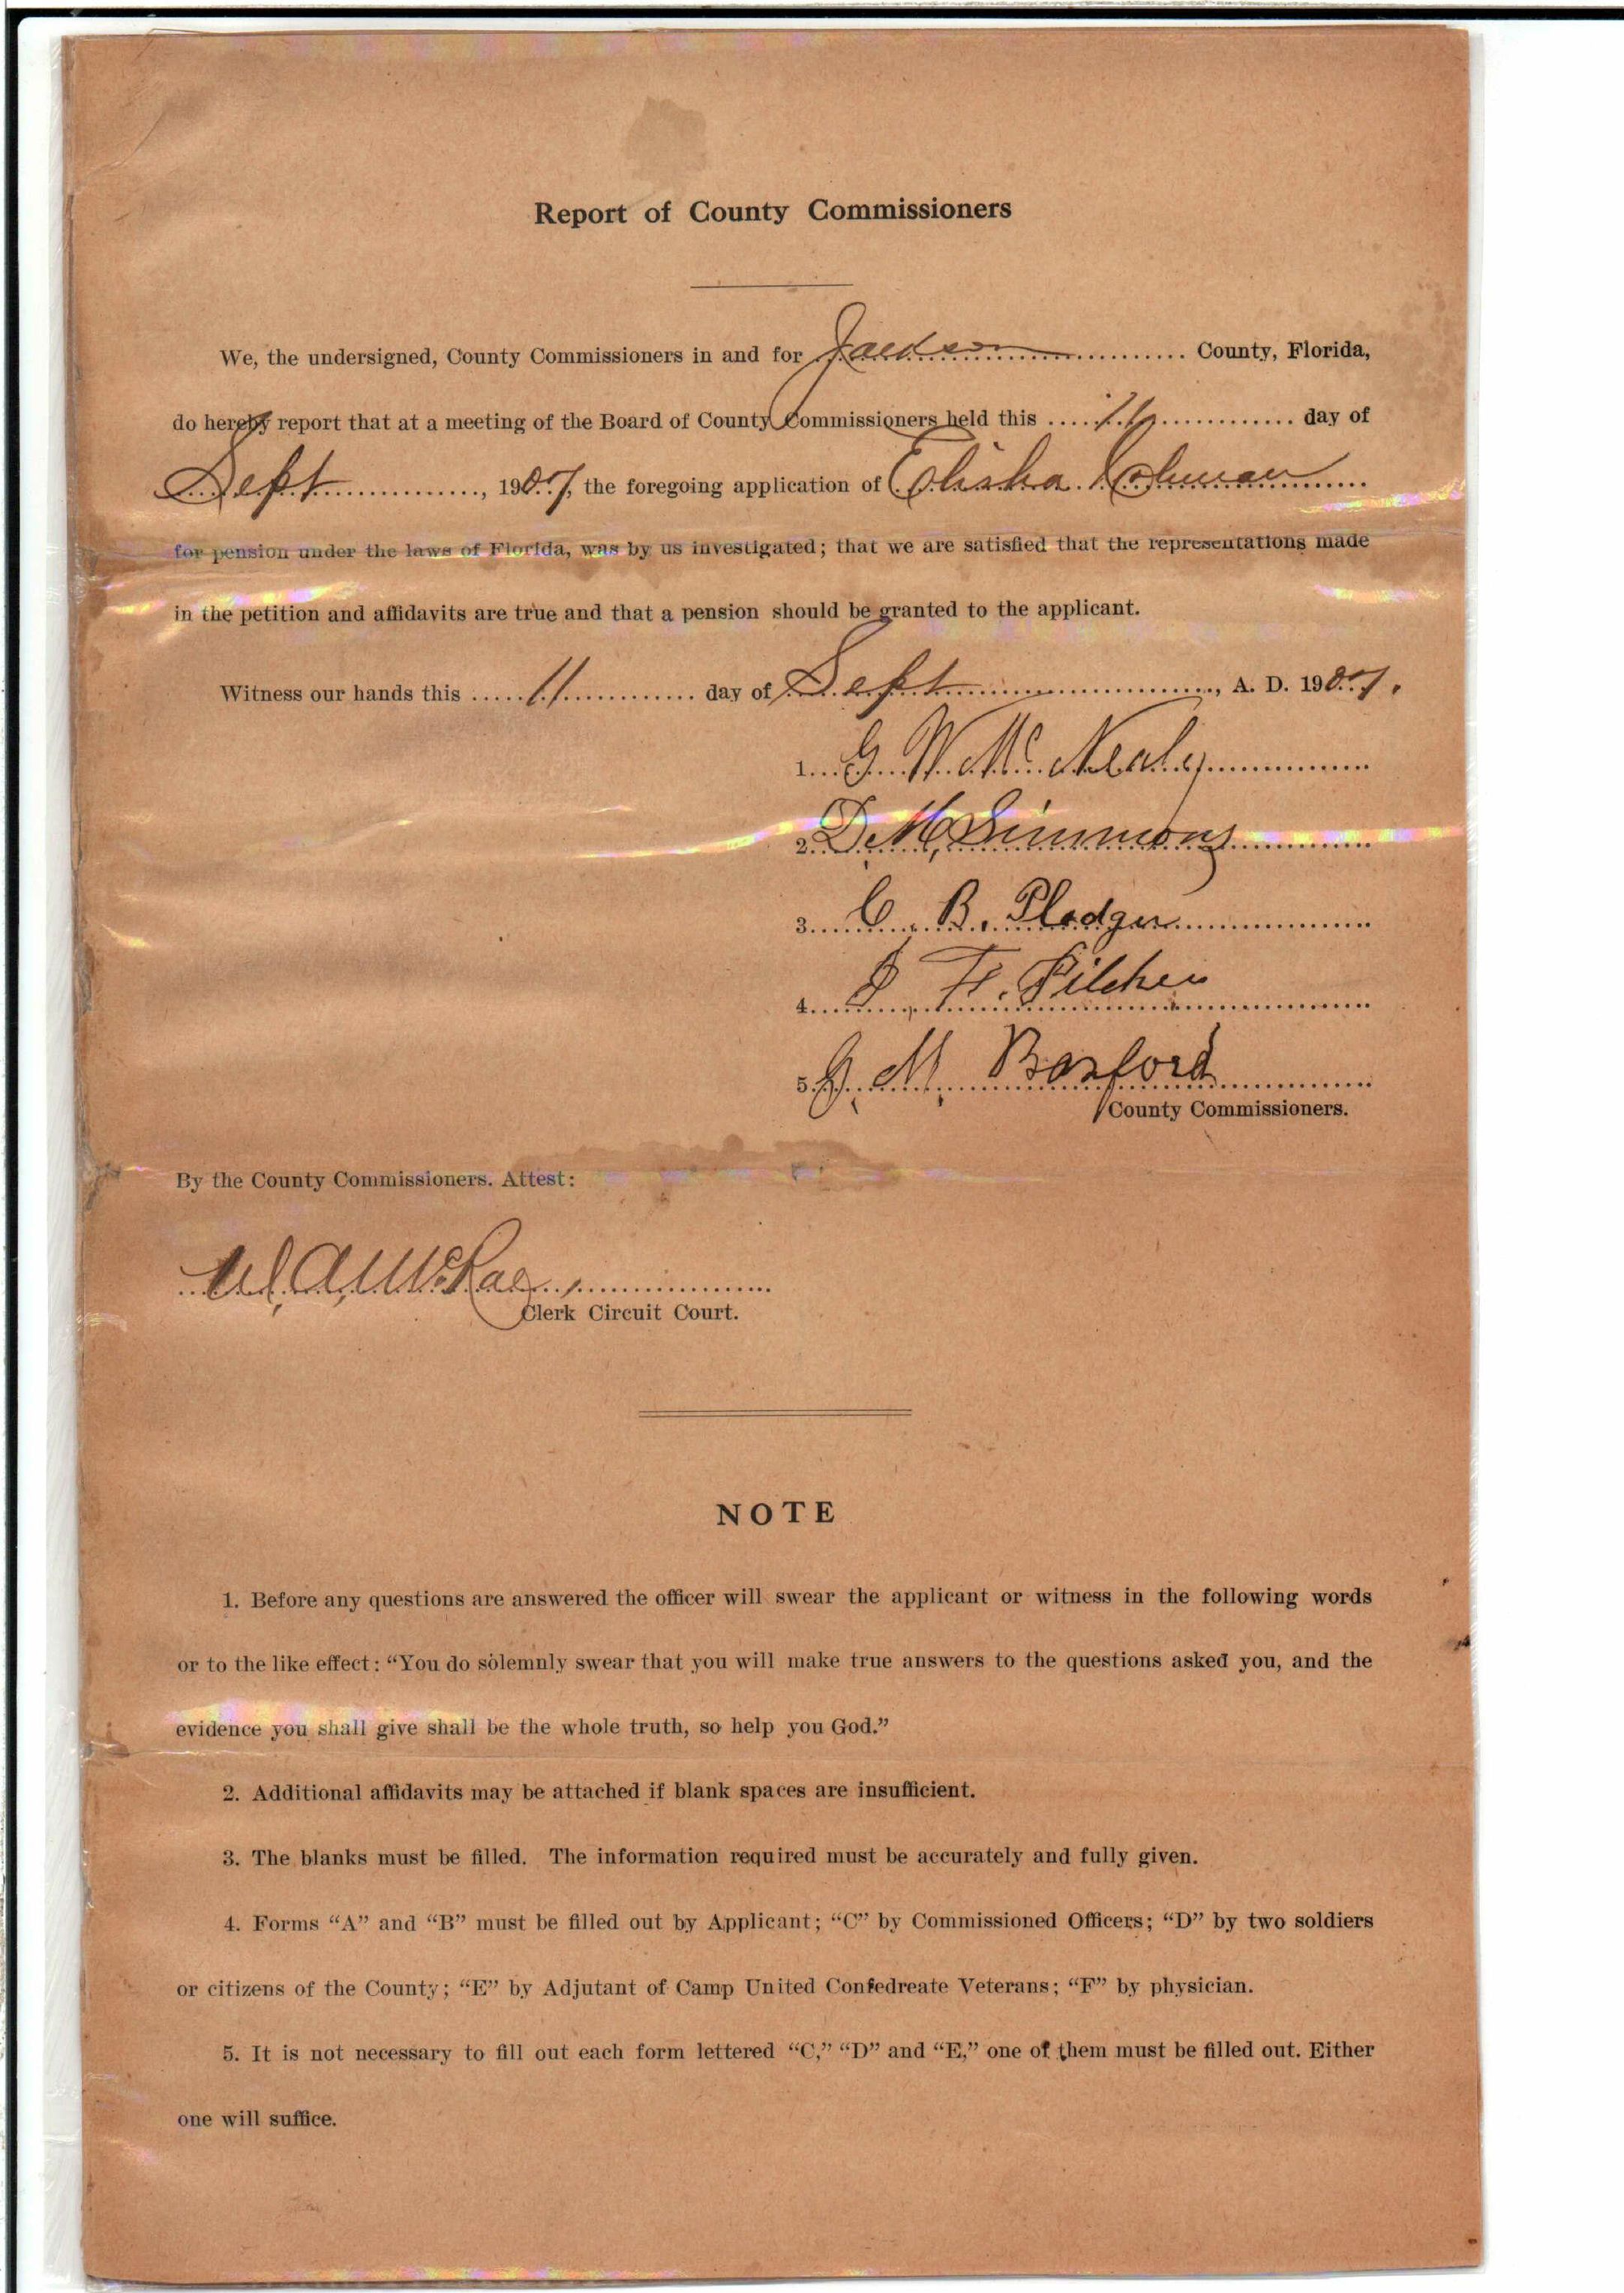 Report of County Commissioners
We, the undersigned, County Commissioners in and for Jackson County, Florida,
do hereby report that at a meeting of the Board of County Commissioners held this day of
Sept, 1907, the foregoing application of Elisha
for pension under the laws of Florida, was by us investigated; that we are satisfied that the representations made
in the petition and affidavits are true and that a pension should be granted to the applicant.
Witness our hands this 11 day of Sept, A. D. 1907.
1. G. W. McNealy
2. D. M. Simmons
3. C. B. Pledger
4. J F. Pilcher
5. J. M. Basford
County Commissioners.
By the County Commissioners. Attest:
W. A. McRae
Clerk Circuit Court.
NOTE
1. Before any questions are answered the officer will swear the applicant or witness in the following words
or to the like effect: “You do solemnly swear that you will make true answers to the questions asked you, and the
evidence you shall give shall be the whole truth, so help you God.”
2. Additional affidavits may be attached if blank spaces are insufficient.
3. The blanks must be filled. The information required must be accurately and fully given.
4. Forms “A” and “B” must be filled out by Applicant; “C” by Commissioned Officers; “D” by two soldiers
or citizens of the County; “E” by Adjutant of Camp United Confedreate Veterans; “F” by physician.
5. It is not necessary to fill out each form lettered “C,” “D” and “E,” one of them must be filled out. Either
one will suffice.